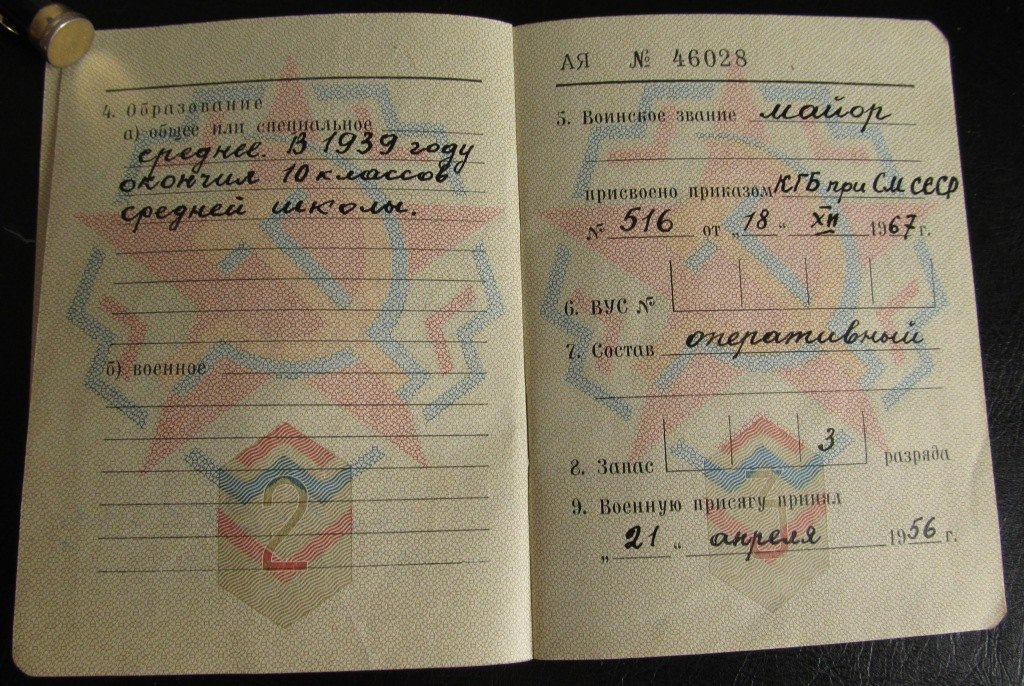 4. Образование
а) общее или специальное
среднее. В 1939 году
окончил 10 классов
средней школы.
б) военное
2
АЯ № 46028
5. Воинское звание майор
присвоено приказом КГБ при СМ СССР
№ 516 от „18“ XII 1967 г.
6. ВУС №
7. Состав оперативный
8. Запас 3 разряда
9. Военную присягу принял
„21“ апреля 1956 г.
3